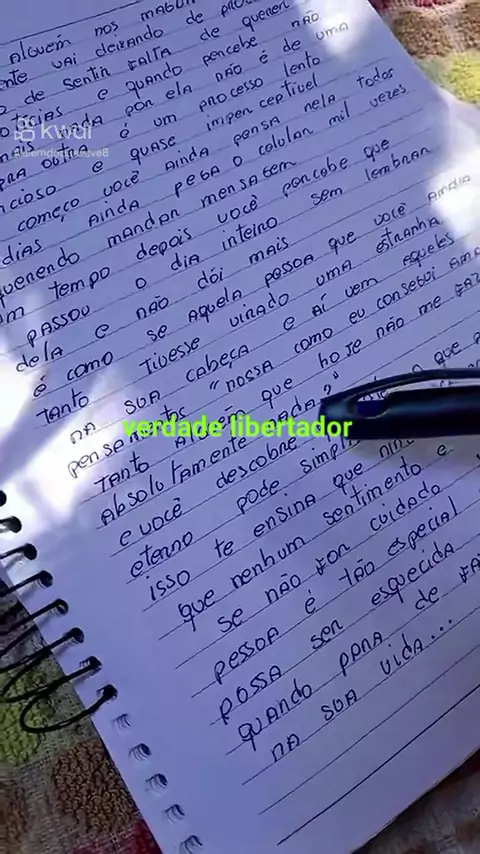 Alguém nos magoa
ente vai deixando de
de sentir falta de querer
notícias e quando percebe não
mais nada por ela não é de uma
pra outra é um processo lento
ncioso e quase imperceptível
começo você ainda pensa nela todos
dias ainda pega o celular mil vezes
querendo mandar mensagem
m tempo depois você percebe que
passou o dia inteiro sem lembrar
dela e não dói mais
é como se aquela pessoa que você amava
tanto tivesse virado uma estranha
na sua cabeça e aí vem aqueles
pensamentos "nossa como eu consegui
tanto alguém que hoje não me
absolutamente nada?"
e você descobre
eterno pode
isso te ensina que
que nenhum sentimento e
se não for cuidado
pessoa é tão especial
possa ser esquecida
quando para de
na sua vida...
kwai
verdade libertador